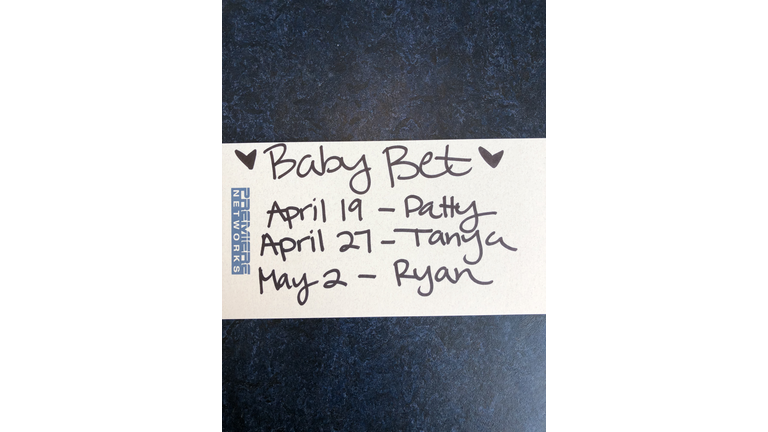 ♥ Baby Bet ♥
April 19 - Patty
April 27 - Tanya
May 2 - Ryan
PREMIERE
NETWORKS